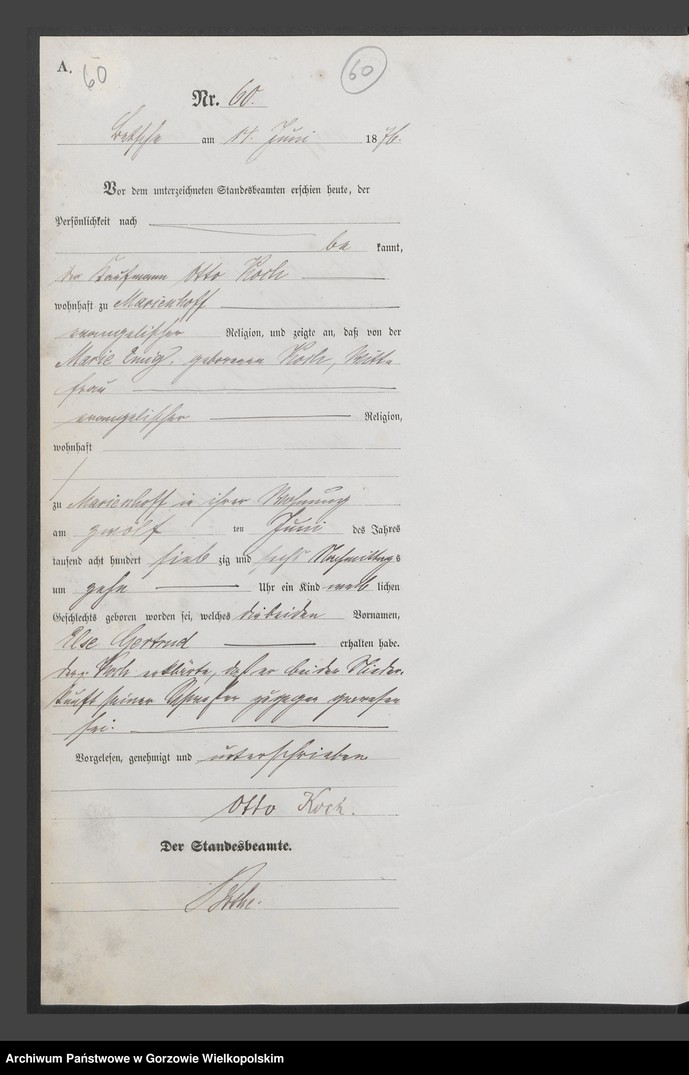 A.
60
60
Nr. 60.
Betsche am 14. Juni 1876.
Vor dem unterzeichneten Standesbeamten erschien heute, der
Persönlichkeit nach
be kannt,
der Kaufmann Otto Koch
wohnhaft zu Marienhoff
evangelischer Religion, und zeigte an, daß von der
Marie geborenen Koch,
frau
evangelischer Religion,
wohnhaft
zu Marienhoff in ihrer Wohnung
am zwölf ten Juni des Jahres
tausend acht hundert sieb zig und sechs Nachmittags
um zehn Uhr ein Kind weib lichen
Geschlechts geboren worden sei, welches die beiden Vornamen,
Else Gertrud erhalten habe.
der Koch erklärte, daß er bei der Nieder-
kunft seiner Schwester zugegen gewesen
sei.
Vorgelesen, genehmigt und unterschrieben
Otto Koch.
Der Standesbeamte.
Archiwum Państwowe w Gorzowie Wielkopolskim